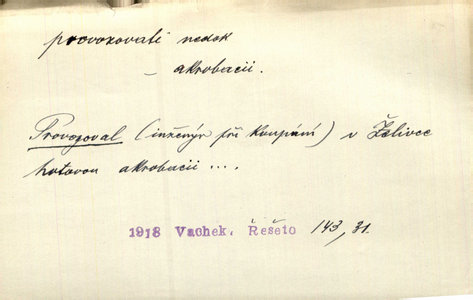 provozovati nedok
– akrobacii.
Provozoval (inženýr při koupání) v Želivce
hotovou akrobacii ...
1918 Vachek, Řešeto 143, 31.